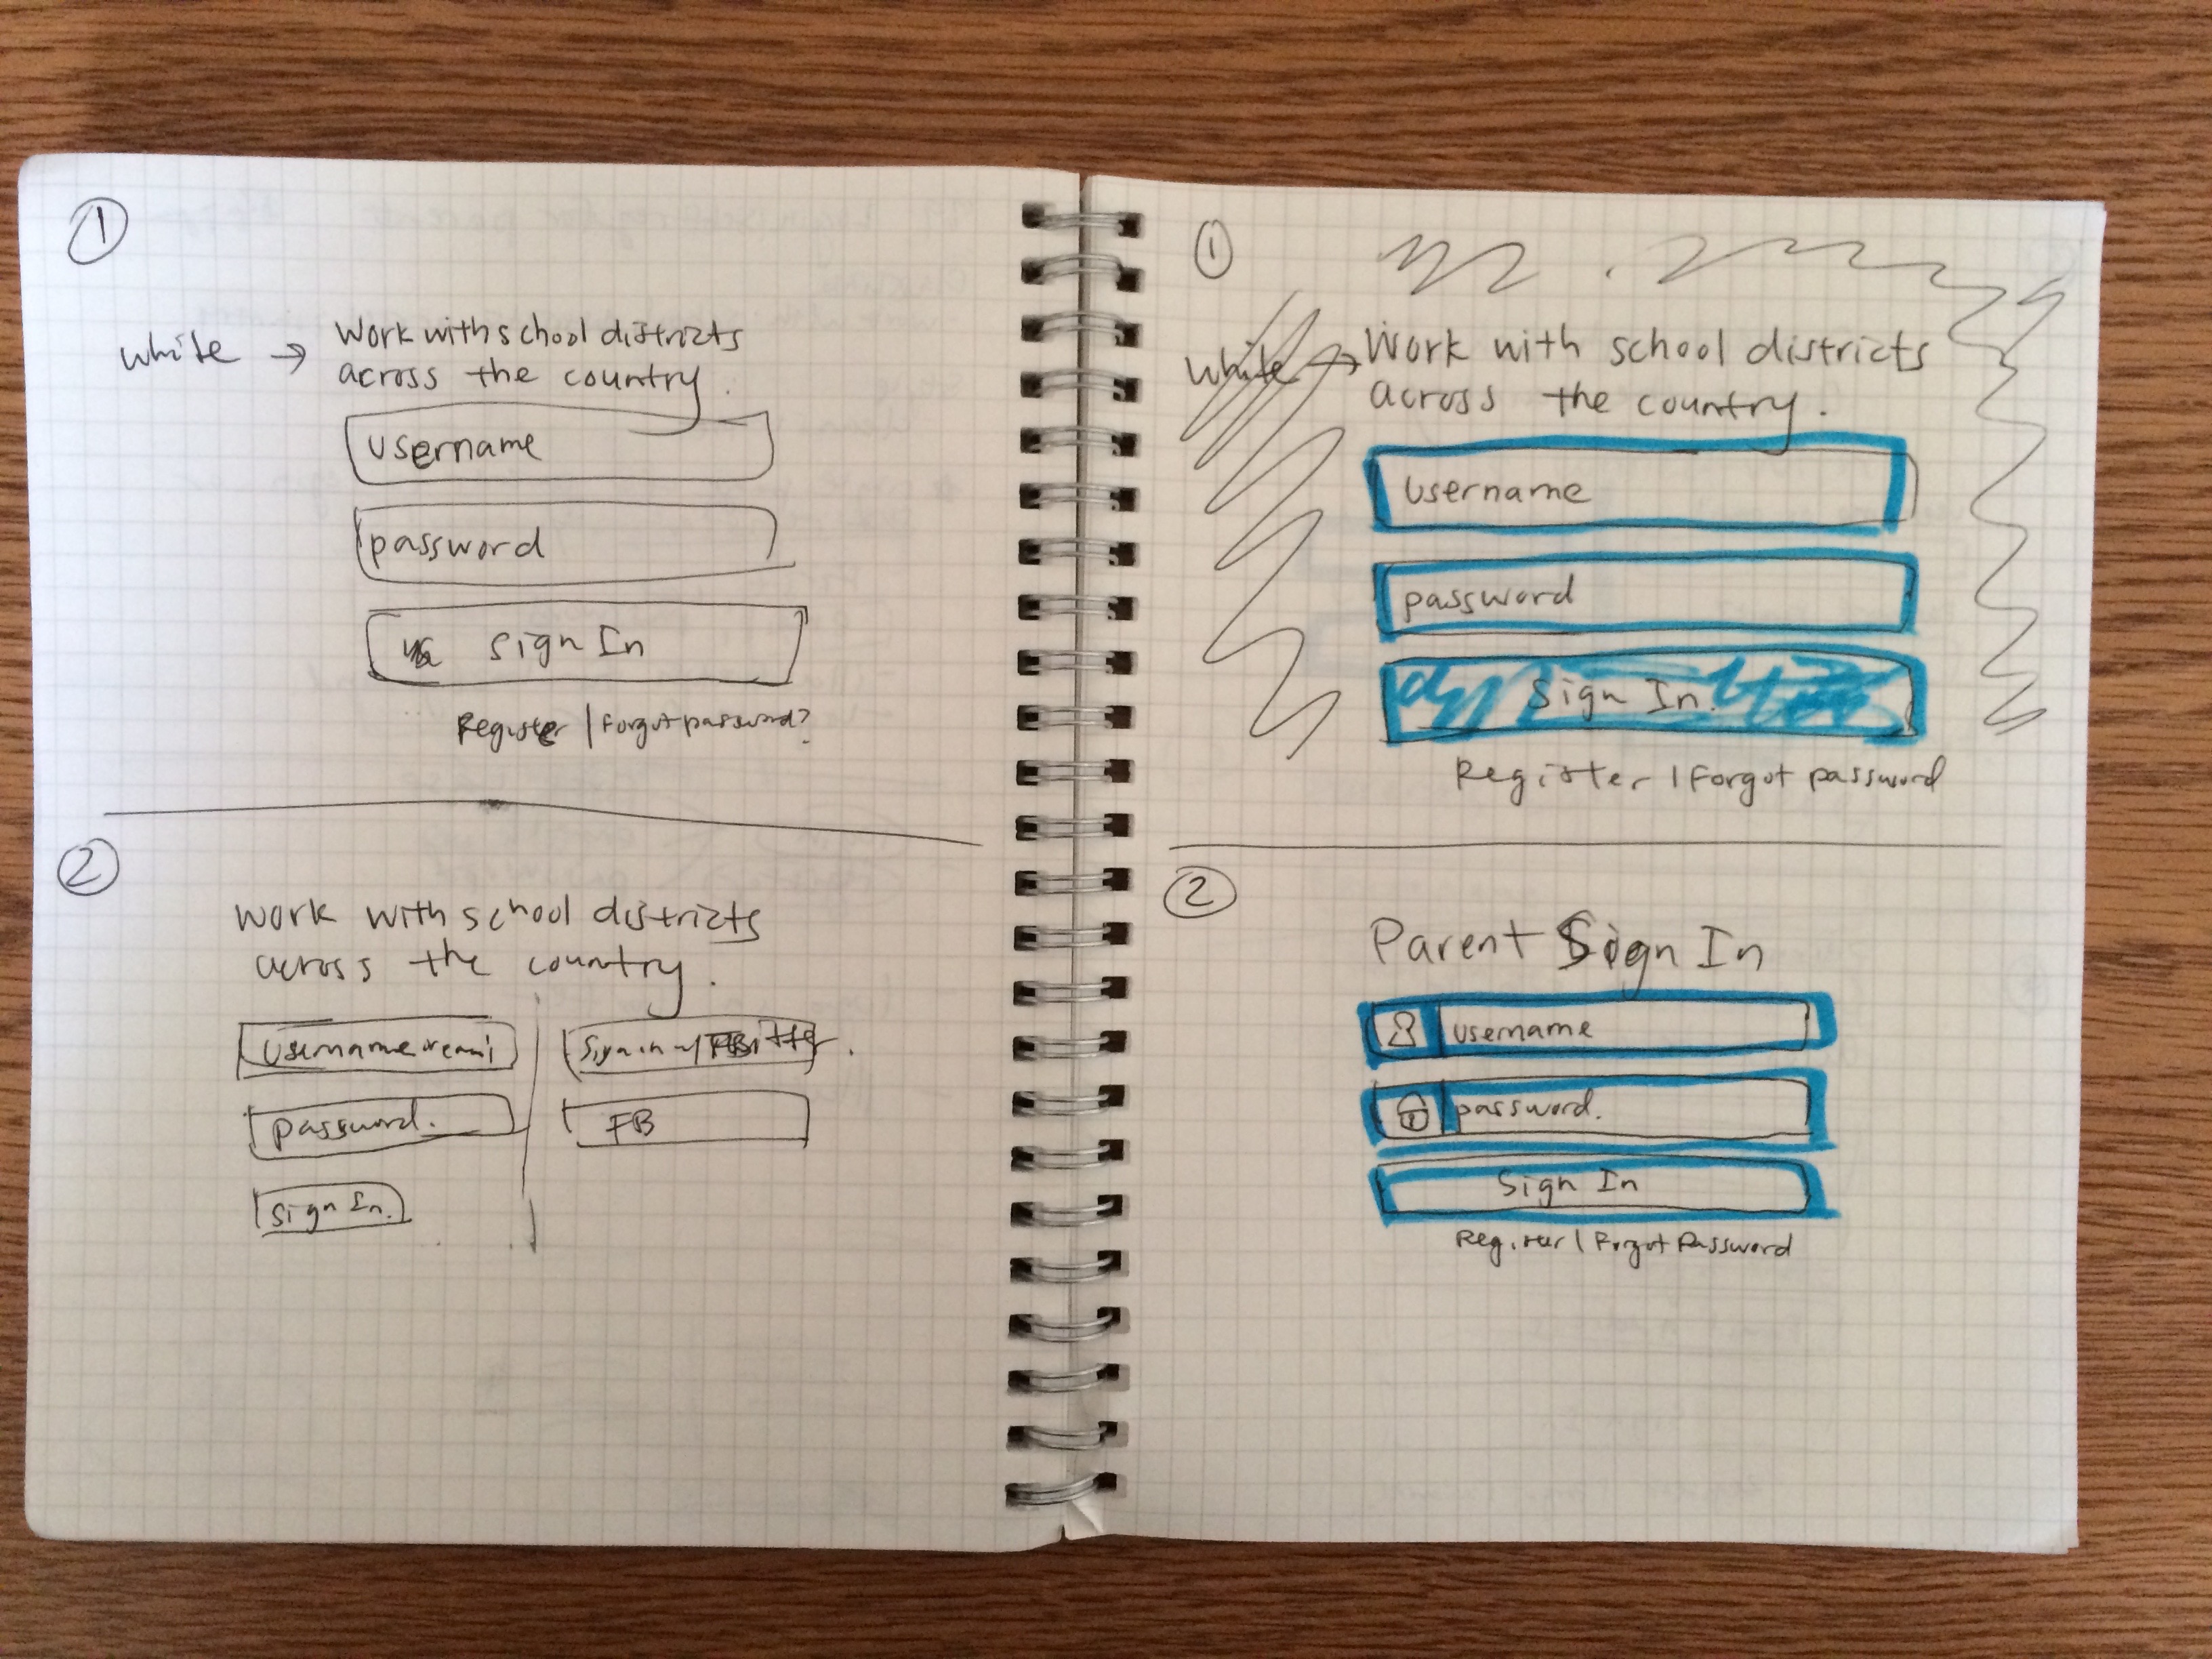 1
white → Work with school districts
across the country.
username
password
Sign In
Register | Forgot password?
2
Work with school districts
across the country.
password.
Sign In.
Sign in w/
FB
1
white → Work with school districts
across the country.
Username
password
Sign In.
Register | Forgot password
2
Parent Sign In
username
password.
Sign In
Register | Forgot Password